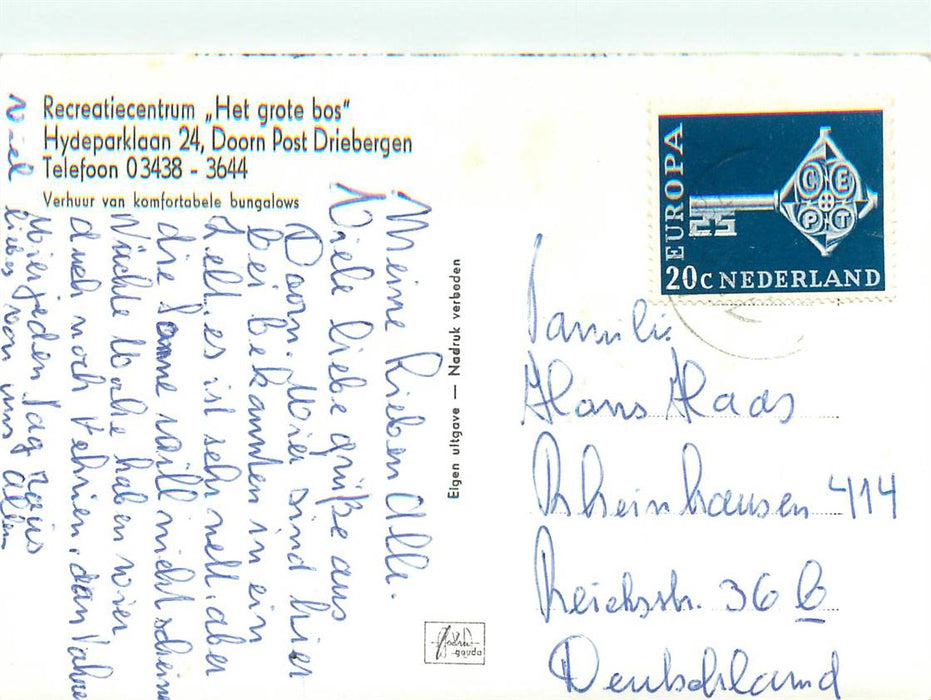 Recreatiecentrum „Het grote bos"
Hydeparklaan 24, Doorn Post Driebergen
Telefoon 03438 - 3644
Verhuur van komfortabele bungalows
Meine Lieben Alle.
Viele liebe grüße aus
Doorn. Wier sind hier
bei bekannten in ein
Zelt. es ist sehr nett. aber
die Sonne will nicht scheinen
Nächte Woche haben wier
auch noch Vehrien. dan Vahren
Wier jeden Tag raus
viel liebes von uns Allen
Eigen uitgave — Nadruk verboden
EUROPA
CEPT
20C NEDERLAND
Familie
Hans Haas
Rheinhausen 414
Reichsstr. 36 B
Deutschland
gouda